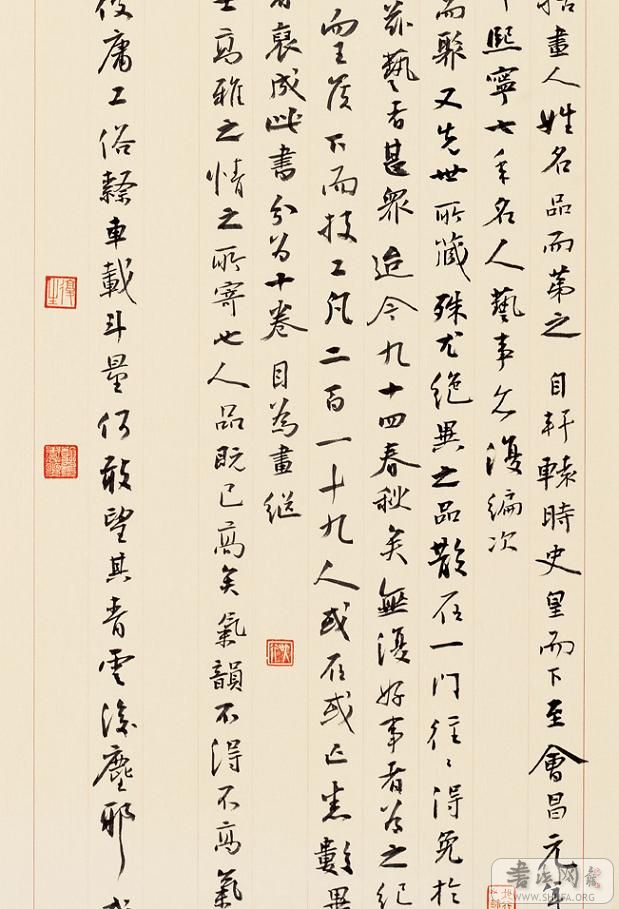 括畫人姓名品而第之 自軒轅時史皇而下至會昌元年
熙寧七年名人藝事亦復編次
而聚又先世所藏殊尤絕異之品散在一門往〻得免於
茲藝者甚眾迨今九十四春秋矣無復好事者為之紀
而王侯下而技工凡二百一十九人或在或亡悉數畢
者裒成此書分為十卷目為畫繼
士高雅之情之所寄也人品既已高矣氣韻不得不高氣
庸工俗隸車載斗量何敢望其青雲後塵邪或
WWW.SHUFA.ORG